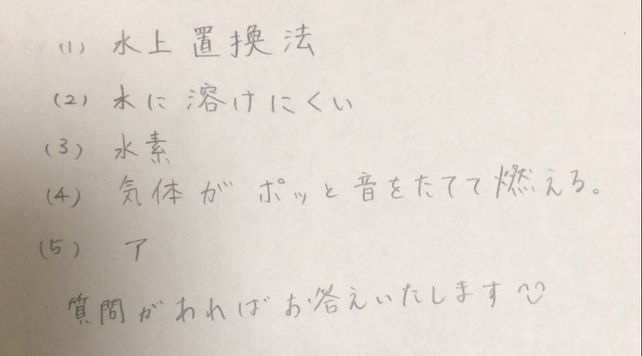 (1) 水上置換法
(2) 水に溶けにくい
(3) 水素
(4) 気体がポッと音をたてて燃える。
(5) ア
質問があればお答えいたします